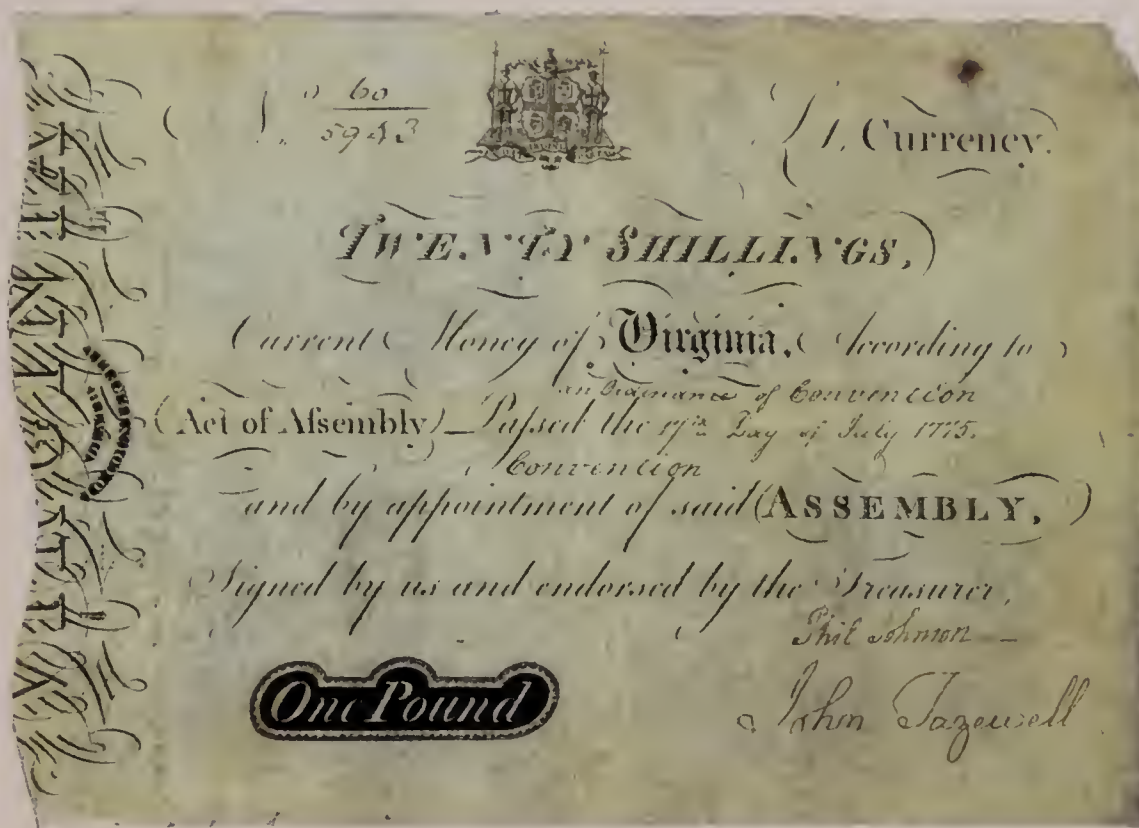 60
5943
1, Currency.
TWENTY SHILLINGS,
Current Money of Virginia, According to
an Ordinance of Convention
(Act of Assembly) Passed the 17th Day of July 1775.
Convention
and by appointment of said (ASSEMBLY,)
Signed by us and endorsed by the Treasurer,
Phil Johnson
John Tazewell
One Pound